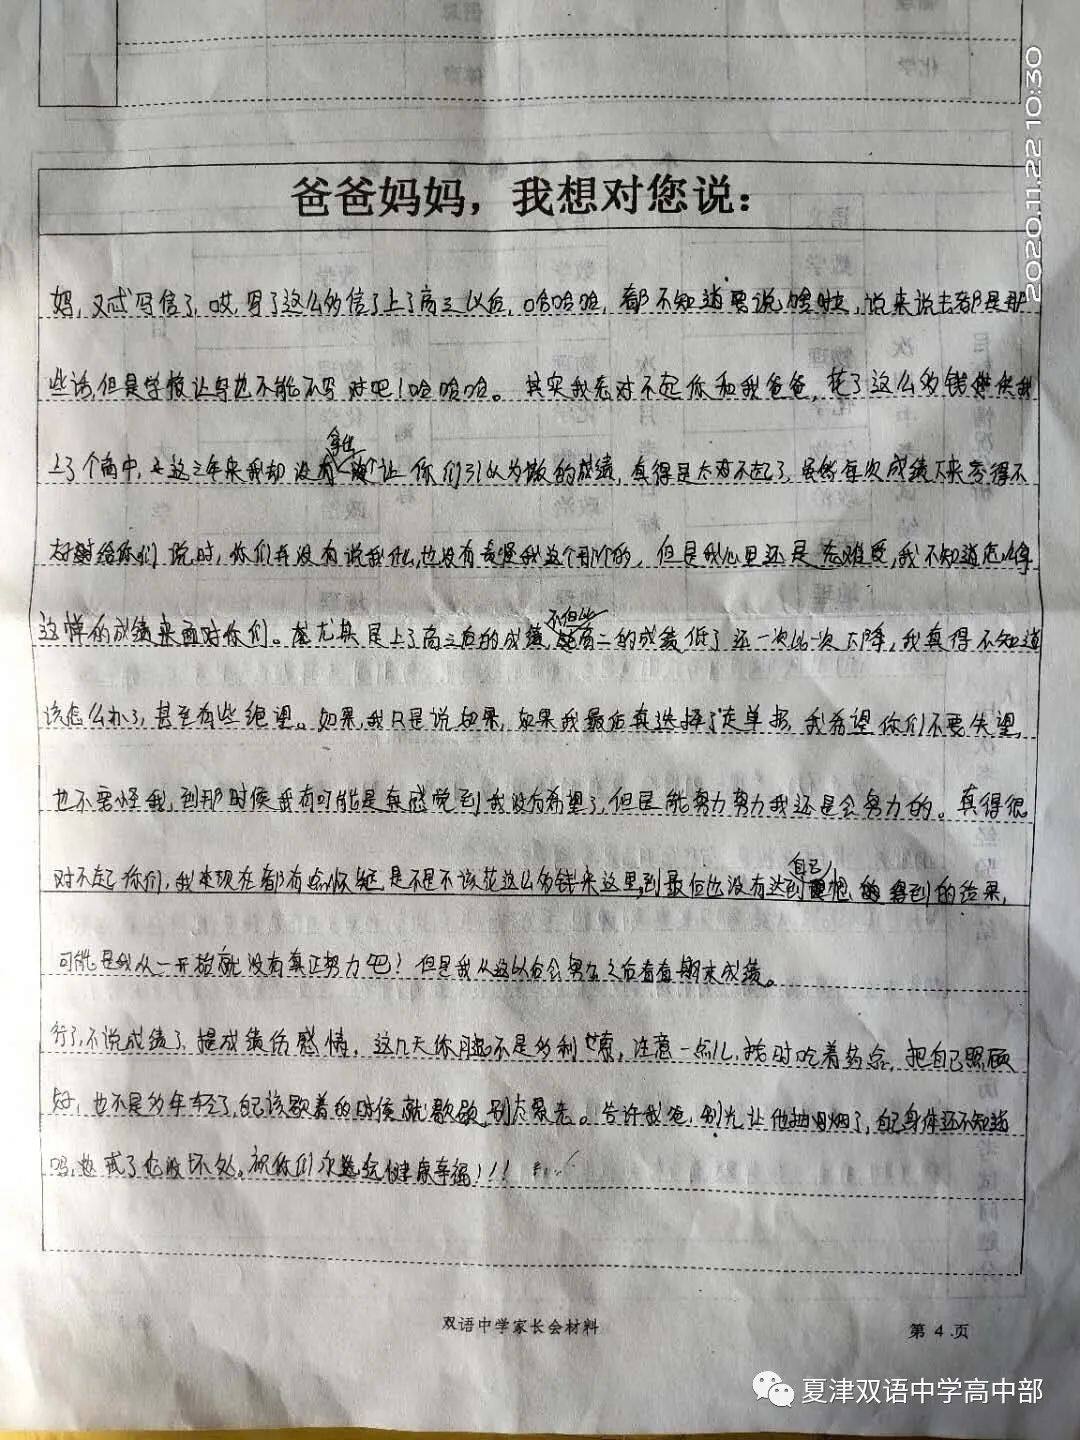 2020.11.22 10:30
爸爸妈妈，我想对您说：
妈，又写信了，哎，写了这么多信了上了高三以后，哈哈哈，都不知道要说啥啦，说来说去都是那
些话，但是学校让写也不能不写对吧！哈哈哈。其实我老对不起你和我爸爸，花了这么多钱供我
上了个高中，这三年来我却没有拿出让你们引以为傲的成绩，真得是太对不起了，虽然每次成绩下来考得不
好给你们说时，你们并没有说我什么，也没有责怪我这个那个的，但是我心里还是老难受，我不知道怎么拿
这样的成绩来面对你们。尤其是上了高三后的成绩，不但比高二的成绩低了还一次比一次下降，我真得不知道
该怎么办了，甚至有些绝望。如果，我只是说如果，如果我最后真选择了走单招，我希望你们不要失望，
也不要怪我，到那时候我有可能是真感觉到我没有希望了，但是能努力努力我还是会努力的。真得很
对不起你们，我现在都有点怀疑是不是不该花这么多钱来这里，到最后也没有达到自己想的得到的结果，
可能是我从一开始就没有真正努力吧？但是我从这以后会努力之后看看期末成绩。
行了，不说成绩了，提成绩伤感情，这几天你腿不是多利索，注意一点儿，按时吃着药点，把自己照顾
好，也不是多年轻了，自己该歇着的时候就歇歇，别太累着。告诉我爸，别光让他抽烟了，自己身体还不知道
吗，戒了也没坏处。祝你们永远健康幸福！！！
双语中学家长会材料
第 4 页
夏津双语中学高中部